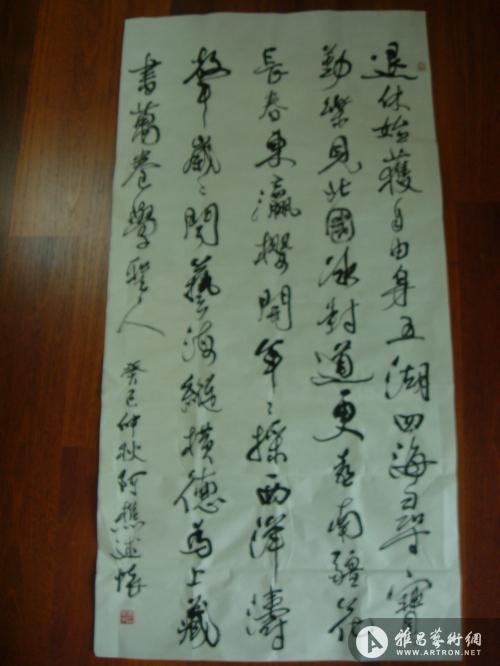 退休始獲自由身五湖四海尋寶
勤樂見北國冰封道更喜南疆花
長春東瀛櫻開年〻探西洋濤
聲歲〻聞藝海縱橫德為上藏
書萬卷學聖人 癸巳仲秋阿樵述懷
雅昌藝術網
WWW.ARTRON.NET